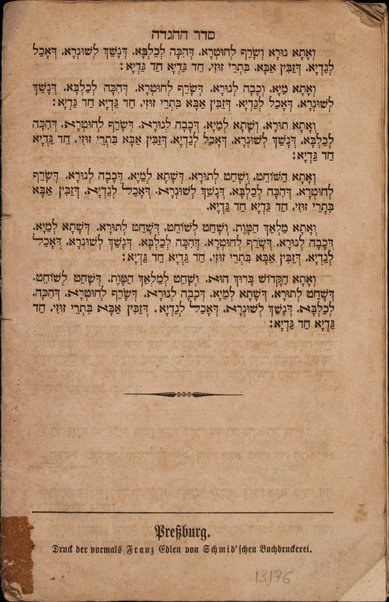 סדר ההגדה
וְאָתָא נוּרָא, וְשָׂרַף לְחוּטְרָא, דְּהִכָּה לְכַלְבָּא, דְּנָשַׁךְ לְשׁוּנְרָא, דְּאָכַל
לְגַדְיָא, דְּזַבִּין אַבָּא, בִּתְרֵי זוּזֵי, חַד גַּדְיָא חַד גַּדְיָא:
וְאָתָא מַיָּא, וְכָבָה לְנוּרָא, דְּשָׂרַף לְחוּטְרָא, דְּהִכָּה לְכַלְבָּא, דְּנָשַׁךְ
לְשׁוּנְרָא, דְּאָכַל לְגַדְיָא, דְּזַבִּין אַבָּא בִּתְרֵי זוּזֵי, חַד גַּדְיָא חַד גַּדְיָא:
וְאָתָא תוֹרָא, וְשָׁתָא לְמַיָּא, דְּכָבָה לְנוּרָא, דְּשָׂרַף לְחוּטְרָא, דְּהִכָּה
לְכַלְבָּא, דְּנָשַׁךְ לְשׁוּנְרָא, דְּאָכַל לְגַדְיָא, דְּזַבִּין אַבָּא בִּתְרֵי זוּזֵי, חַד גַּדְיָא
חַד גַּדְיָא:
וְאָתָא הַשּׁוֹחֵט, וְשָׁחַט לְתוֹרָא, דְּשָׁתָא לְמַיָּא, דְּכָבָה לְנוּרָא, דְּשָׂרַף
לְחוּטְרָא, דְּהִכָּה לְכַלְבָּא, דְּנָשַׁךְ לְשׁוּנְרָא, דְּאָכַל לְגַדְיָא, דְּזַבִּין אַבָּא
בִּתְרֵי זוּזֵי, חַד גַּדְיָא חַד גַּדְיָא.
וְאָתָא מַלְאַךְ הַמָּוֶת, וְשָׁחַט לְשׁוֹחֵט, דְּשָׁחַט לְתוֹרָא, דְּשָׁתָא לְמַיָּא,
דְּכָבָה לְנוּרָא, דְּשָׂרַף לְחוּטְרָא, דְּהִכָּה לְכַלְבָּא, דְּנָשַׁךְ לְשׁוּנְרָא, דְּאָכַל
לְגַדְיָא, דְּזַבִּין אַבָּא בִּתְרֵי זוּזֵי, חַד גַּדְיָא חַד גַּדְיָא:
וְאָתָא הַקָּדוֹשׁ בָּרוּךְ הוּא, וְשָׁחַט לְמַלְאַךְ הַמָּוֶת, דְּשָׁחַט לְשׁוֹחֵט,
דְּשָׁחַט לְתוֹרָא, דְּשָׁתָא לְמַיָּא, דְּכָבָה לְנוּרָא, דְּשָׂרַף לְחוּטְרָא, דְּהִכָּה,
לְכַלְבָּא, דְּנָשַׁךְ לְשׁוּנְרָא, דְּאָכַל לְגַדְיָא, דְּזַבִּין אַבָּא בִּתְרֵי זוּזֵי, חַד
גַּדְיָא חַד גַּדְיָא:
Preßburg.
Druck der vormals Franz Edlen von Schmid'schen Buchdruckerei.
13176